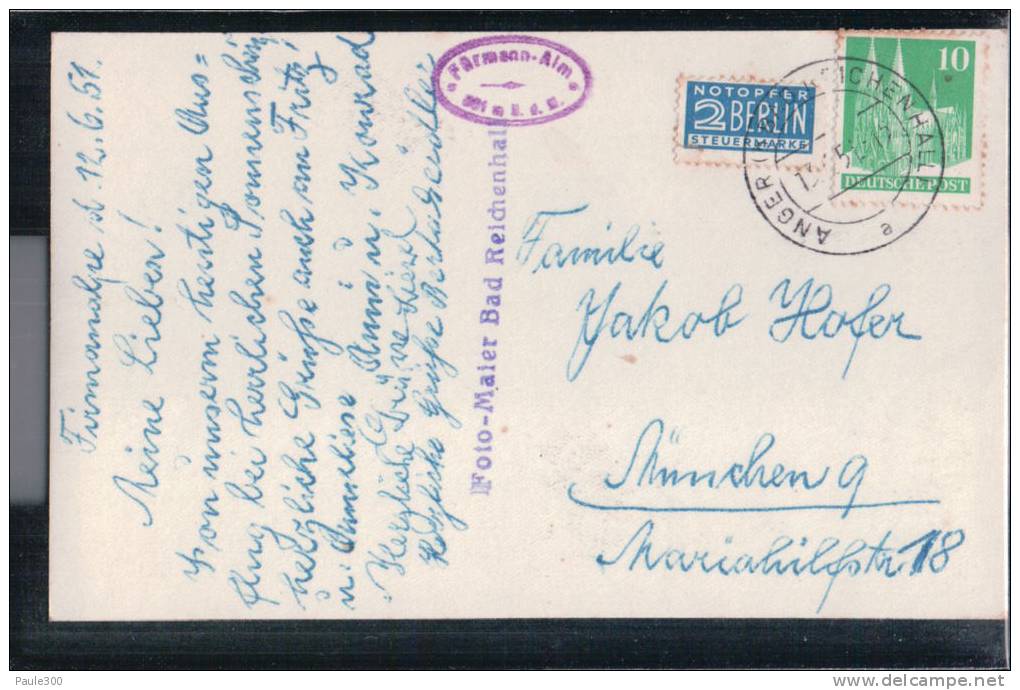 Fürmannalpe d. 12.6.51.
Meine Lieben!
Von unserm heutigen Aus=
flug bei herrlichen Sonnenschein
herzliche Grüsse auch an Fritz
u. Anneliese Anni u. Konrad
Herzliche Grüsse
Herzliche Grüsse
Fürmann-Alm
Foto-Maier Bad Reichenhall
NOTOPFER
2 BERLIN
STEUERMARKE
10
DEUTSCHE POST
ANGER REICHENHALL
a
Familie
Jakob Hofer
München 9
Mariahilfstr. 18
Paule300
delcampe.net